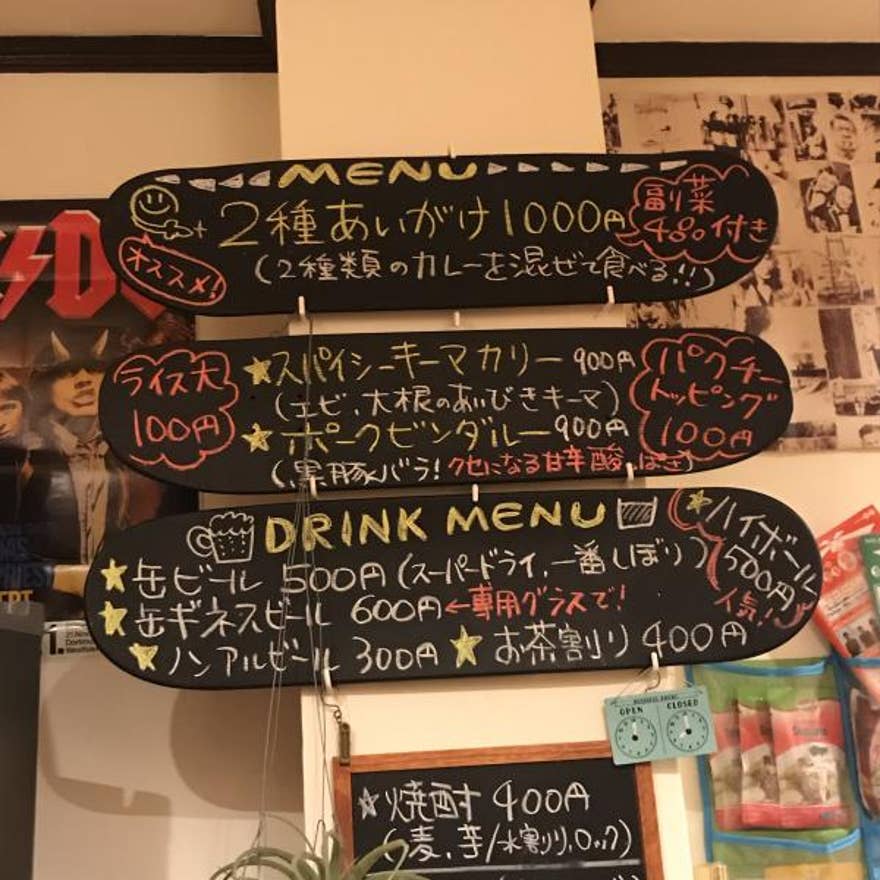 MENU
2種あいがけ1000円
副菜
4品付き
オススメ!
(2種類のカレーを混ぜて食べる!!)
ライス大
100円
スパイシーキーマカリー 900円
(エビ、大根のあいびきキーマ)
ポークビンダルー 900円
(黒豚バラ!クセになる甘辛酸っぱさ)
パクチー
トッピング
100円
DRINK MENU
缶ビール 500円(スーパードライ、一番しぼり)
ハイボール
500円
人気!
缶ギネスビール 600円←専用グラスで!
ノンアルビール 300円
お茶割り 400円
BUSINESS HOURS
OPEN
CLOSED
焼酎 400円
(麦、芋/水割り、ロック)